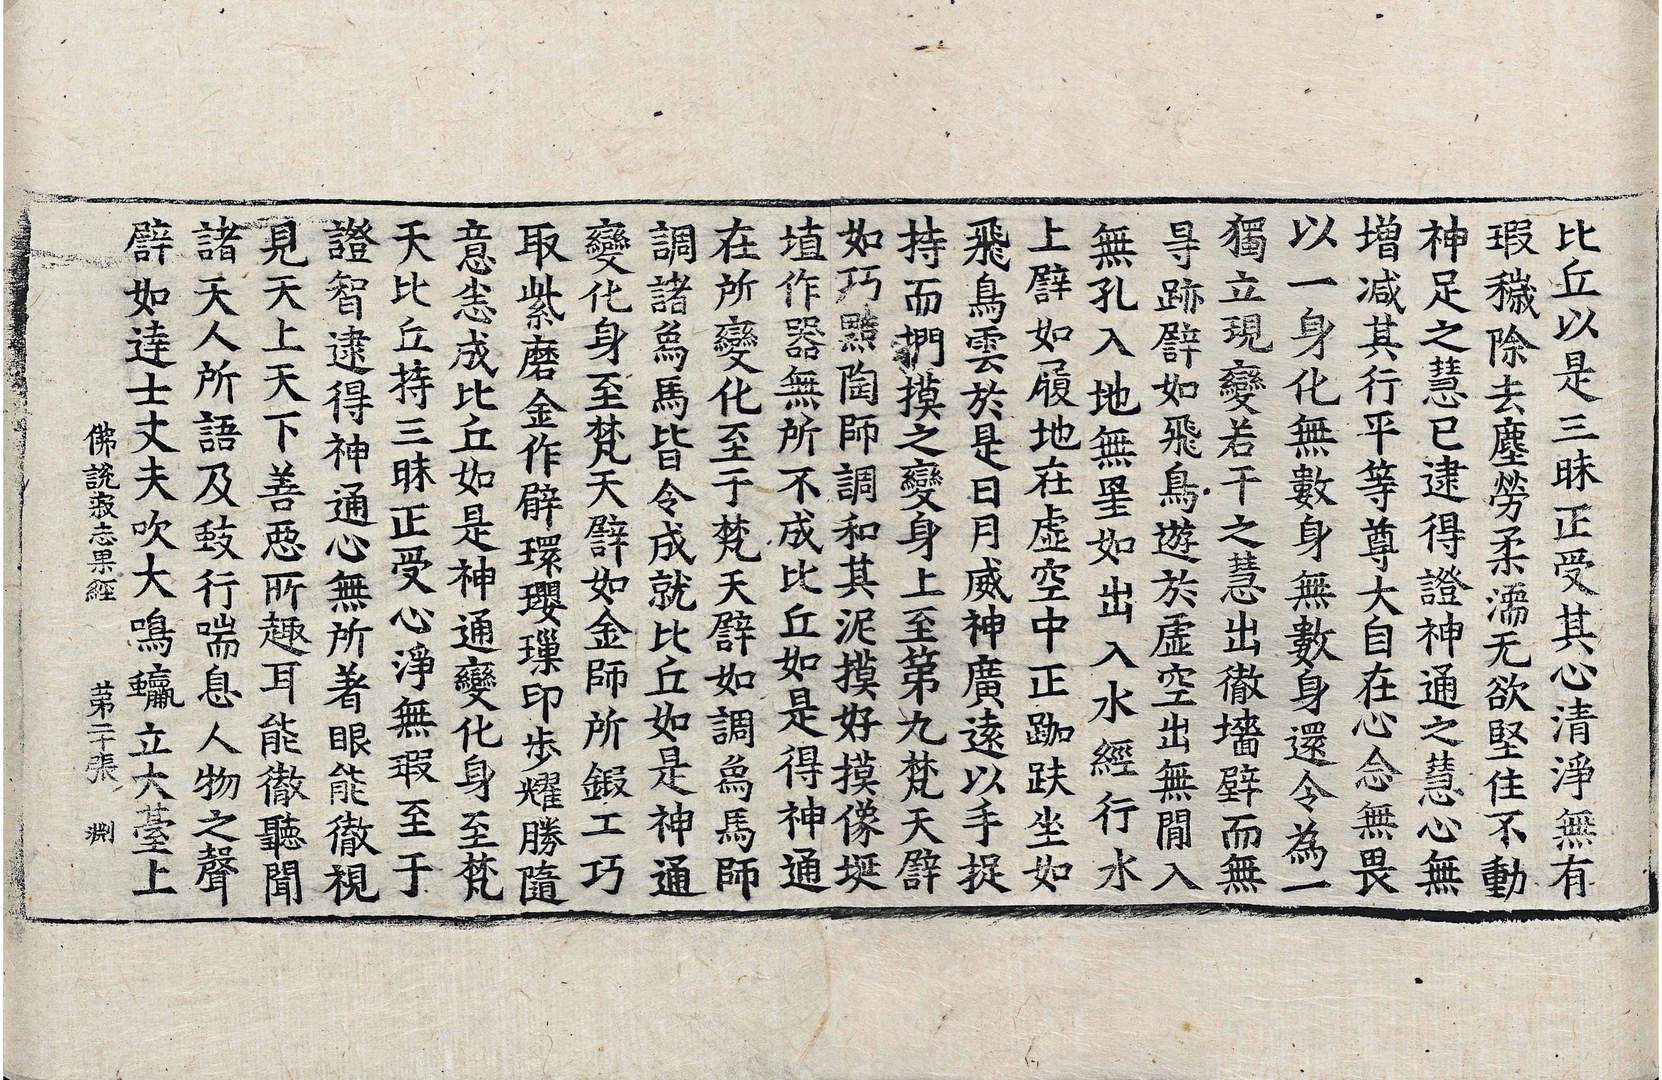 比丘以是三昧正受其心清淨無有
瑕穢除去塵勞柔濡无欲堅住不動
神足之慧已逮得證神通之慧心無
增減其行平等尊大自在心念無畏
以一身化無數身無數身還令為一
獨立現變若干之慧出徹墻壁而無
㝵跡譬如飛鳥遊於虛空出無間入
無孔入地無㞷如出入水經行水
上譬如履地在虛空中正跏趺坐如
飛鳥雲於是日月威神廣遠以手捉
持而捫摸之變身上至第九梵天譬
如巧黠陶師調和其泥摸好摸像埏
埴作器無所不成比丘如是得神通
在所變化至于梵天譬如調象馬師
調諸象馬皆令成就比丘如是神通
變化身至梵天譬如金師所鍛工巧
取紫磨金作臂環瓔璅印步耀勝隨
意悉成比丘如是神通變化身至梵
天比丘持三昧正受心淨無瑕至于
證智逮得神通心無所著眼能徹視
見天上天下善惡所趣耳能徹聽聞
諸天人所語及蚑行喘息人物之聲
譬如達士丈夫吹大鳴蠃立大臺上
佛說寂志果經 第二十張 淵